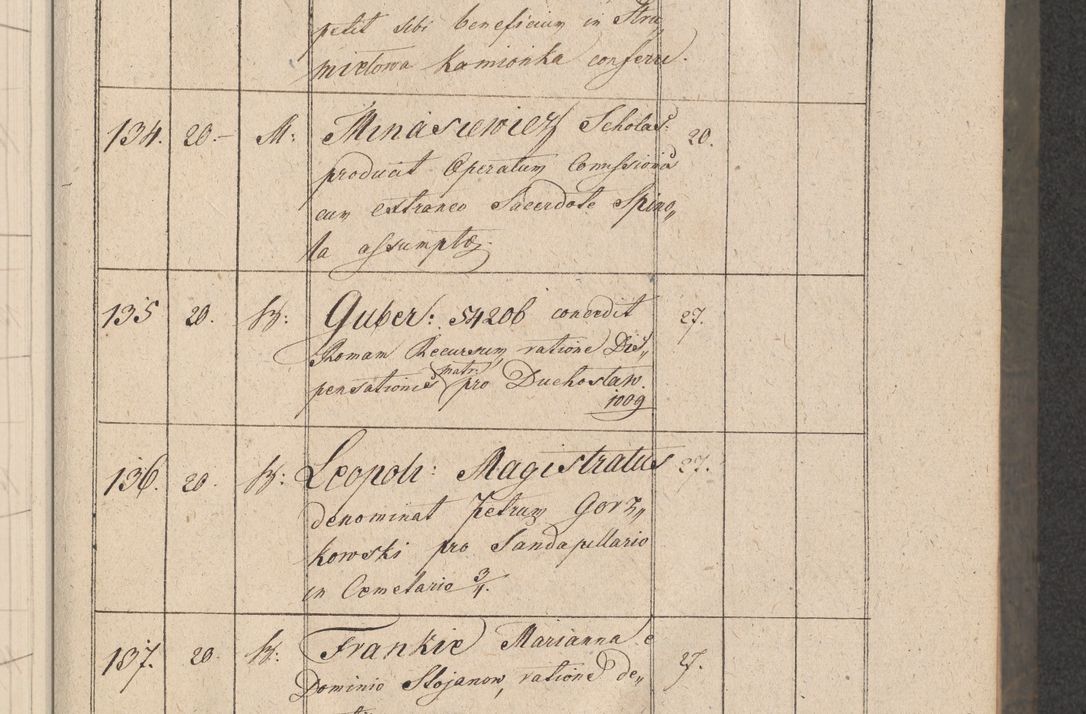 petit sibi beneficium in Stru„
miełowa Kamionka conferri.
134. 20.– M: Minasiewicz Scholas: 20.
producit Operatum Comissionis
cum extraneo Sacerdote Spino„
la assumptæ.
135 20. Guber: 54206 concedit 27.
Romam Recursum ratione Dis„
pensationis matr: pro Duchoslaw.
1009
136. 20. Leopoli: Magistratus 27.
denominat Petrum Gorz„
kowski pro Sandapillario
in Cœmetario 3/4.
137. 20. Frankie Marianna e 27.
Dominio Stojanow, ratione de„